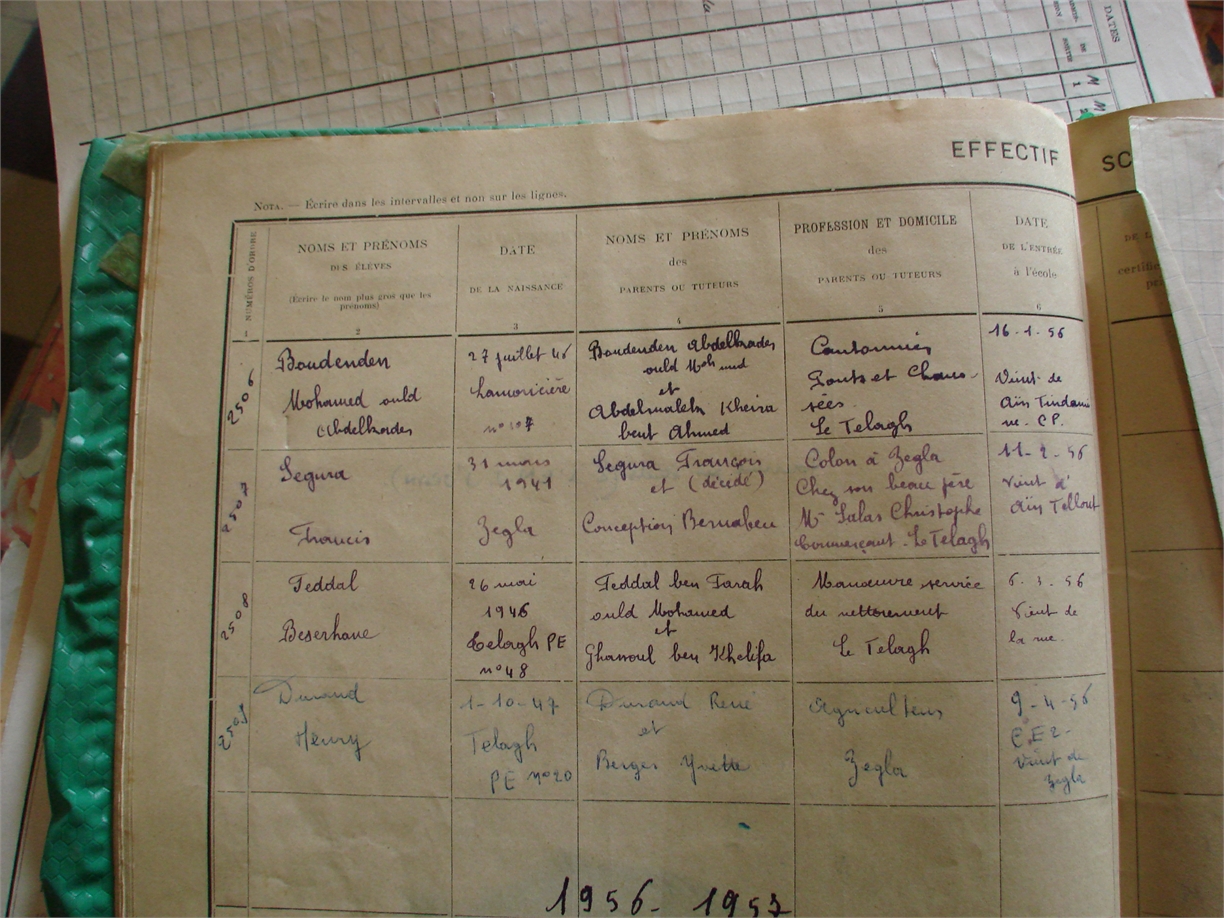 DATES
EFFECTIF
SC
NOTA. — Écrire dans les intervalles et non sur les lignes.
NUMÉROS D'ORDRE
1
NOMS ET PRÉNOMS
DES ÉLÈVES
(Écrire le nom plus gros que les
prénoms)
2
DATE
DE LA NAISSANCE
3
NOMS ET PRÉNOMS
des
PARENTS OU TUTEURS
4
PROFESSION ET DOMICILE
des
PARENTS OU TUTEURS
5
DATE
DE L'ENTRÉE
à l'école
6
2506
Boudenden
Mohamed ould
Abdelkader
27 juillet 46
Lamoricière
n° 107
Boudenden Abdelkader
ould
et
Abdelmalek Kheira
bent Ahmed
Cantonnier
Ponts et Chaus-
sées
Le Telagh
16-1-56
Vient de
Aïn Tindami
ne. CP.
2507
Segura
Francis
31 mars
1941
Zegla
Segura François
et (décédé)
Conception Bernabeu
Colon à Zegla
Chez son beau père
Mr Salas Christophe
Commerçant - Le Telagh
11-2-56
Vient d'
Aïn Tellout
2508
Feddal
Beserhane
26 mai
1946
Telagh PE
n° 48
Feddal ben Farah
ould Mohamed
et
Ghanoul ben Khelifa
Manœuvre service
du nettoiement
Le Telagh
6. 3. 56
Vient de
la rue.
2509
Durand
Henry
1-10-47
Telagh
PE n° 20
Durand René
et
Berger Yvette
Agriculteur
Zegla
9-4-56
C.E2-
Vient de
Zegla
1956-1957